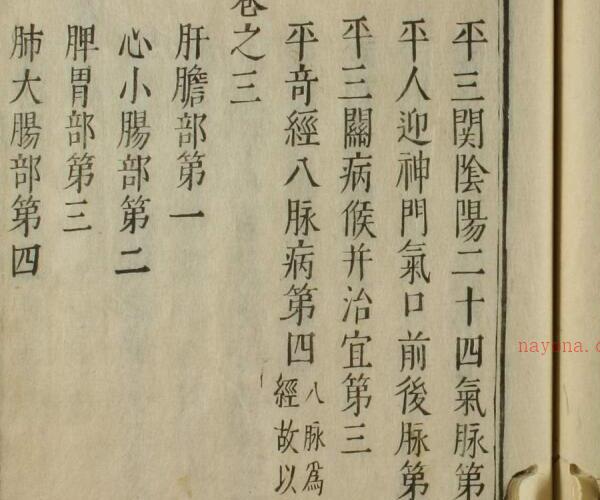 平三関陰陽二十四氣脉第
平人迎神門氣口前後脉第
平三關病候并治宜第三
平奇經八脉病第四
八脉爲
經故以
卷之三
肝膽部第一
心小腸部第二
脾胃部第三
肺大腸部第四
nayona.c